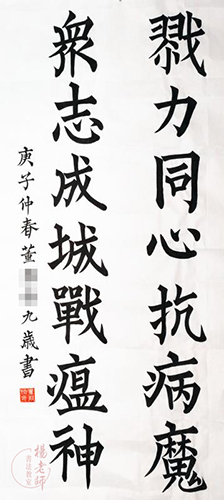 戮力同心抗病魔
眾志成城戰瘟神
庚子仲春董 九歲書
楊老師
書法教室